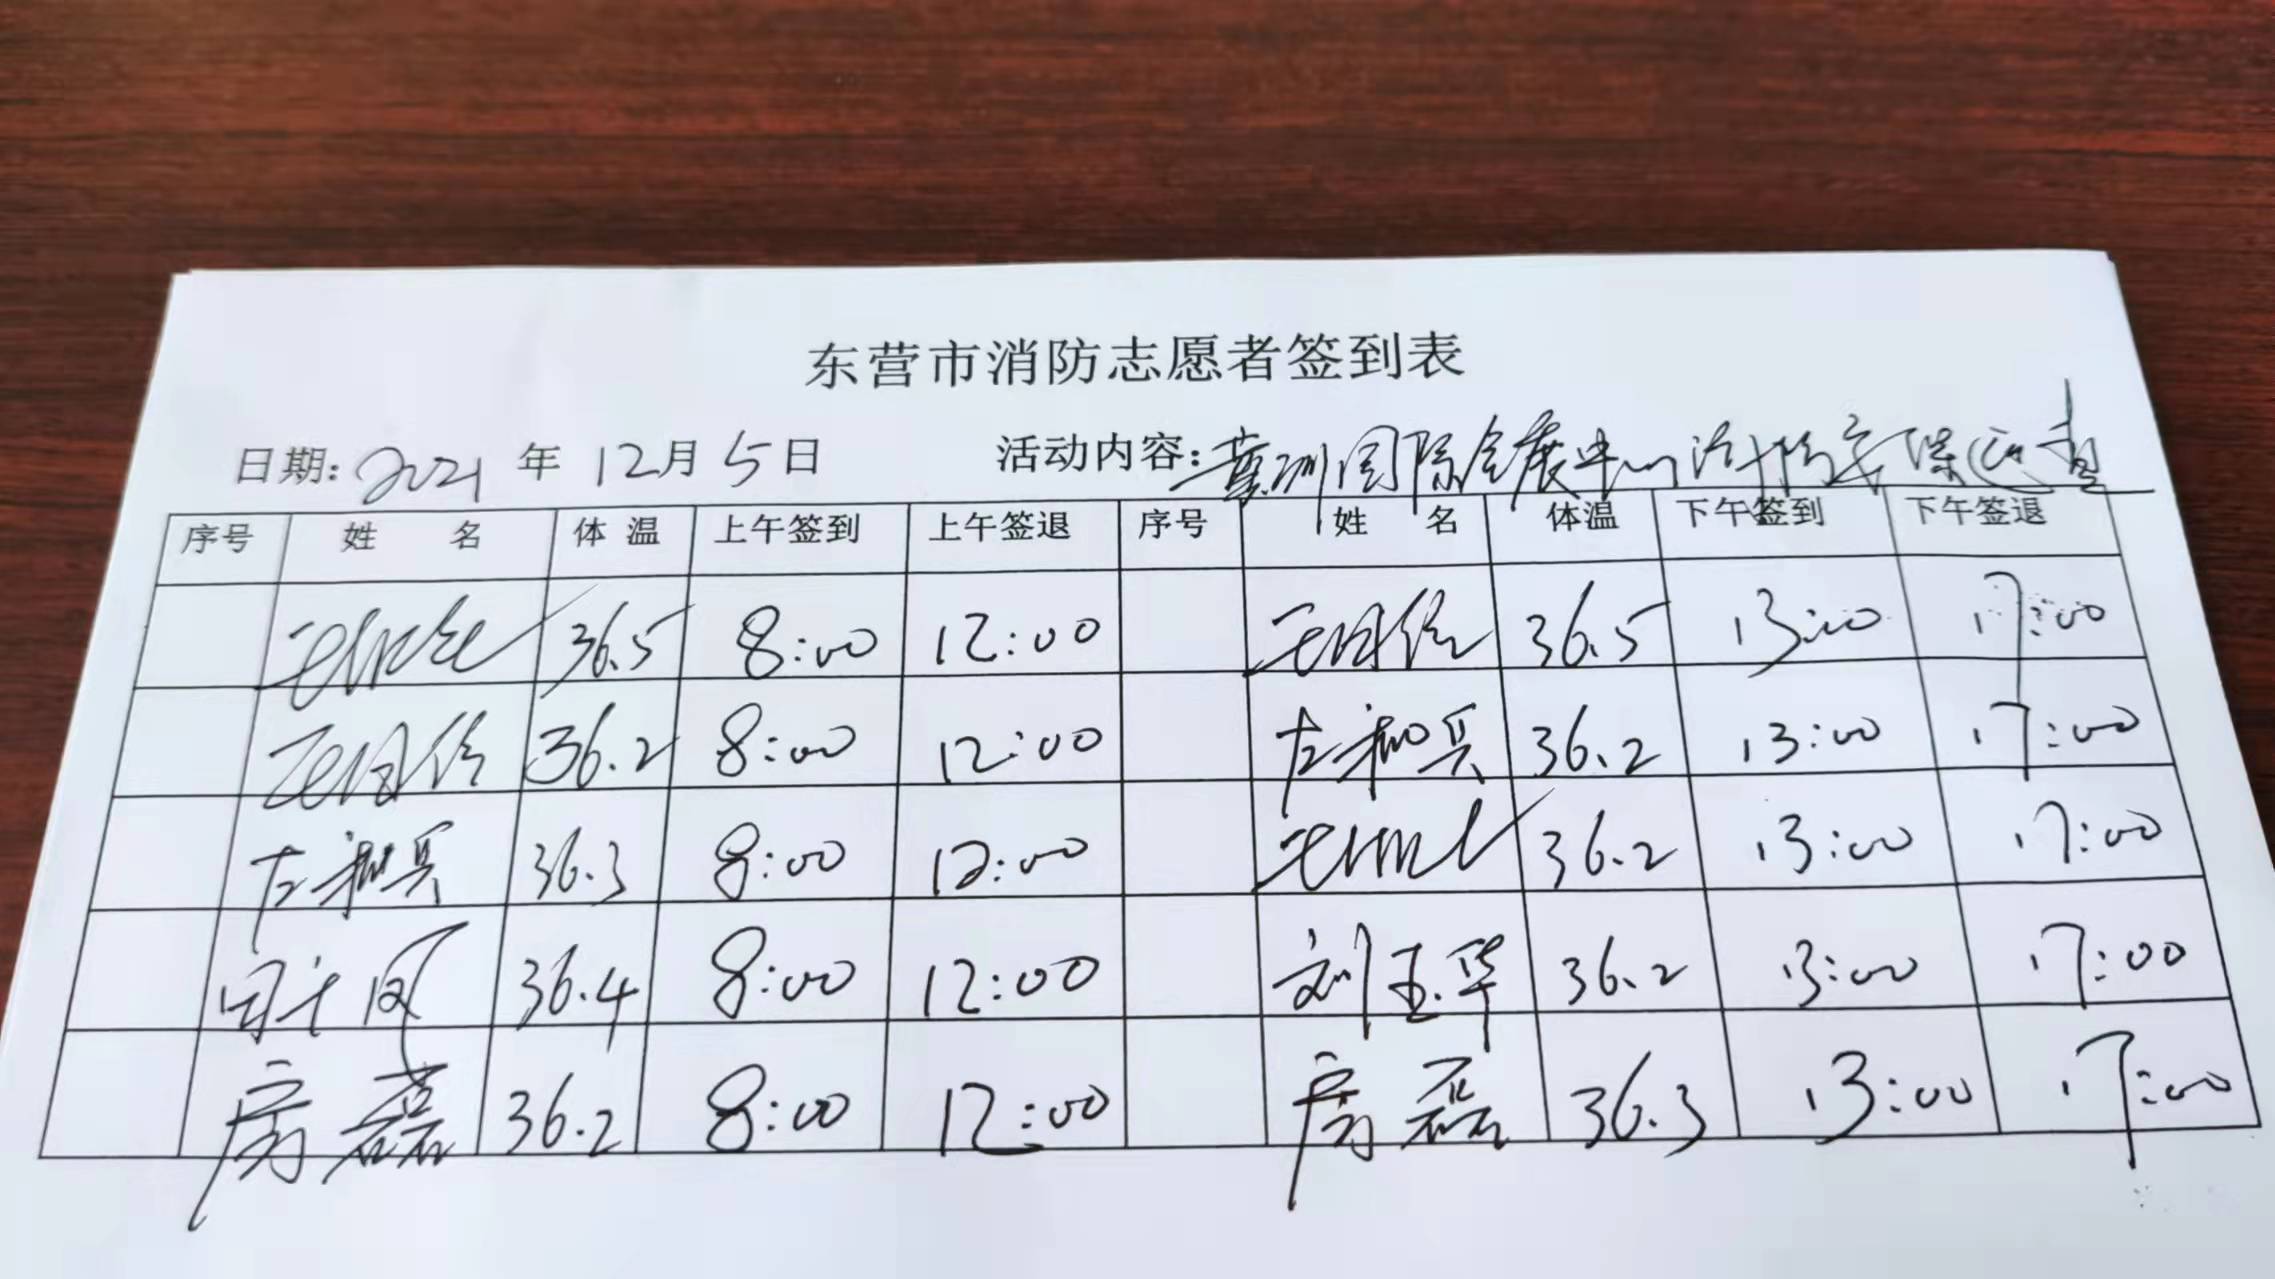 东营市消防志愿者签到表
日期:2021年12月5日 活动内容:黄河国际会展中心消防安保巡查
序号 姓 名 体 温 上午签到 上午签退 序号 姓 名 体温 下午签到 下午签退
36.5 8:00 12:00 36.5 13:00 17:00
36.2 8:00 12:00 左和兵 36.2 13:00 17:00
左和兵 36.3 8:00 12:00 36.2 13:00 17:00
36.4 8:00 12:00 刘玉华 36.2 13:00 17:00
房磊 36.2 8:00 12:00 房磊 36.3 13:00 17:00